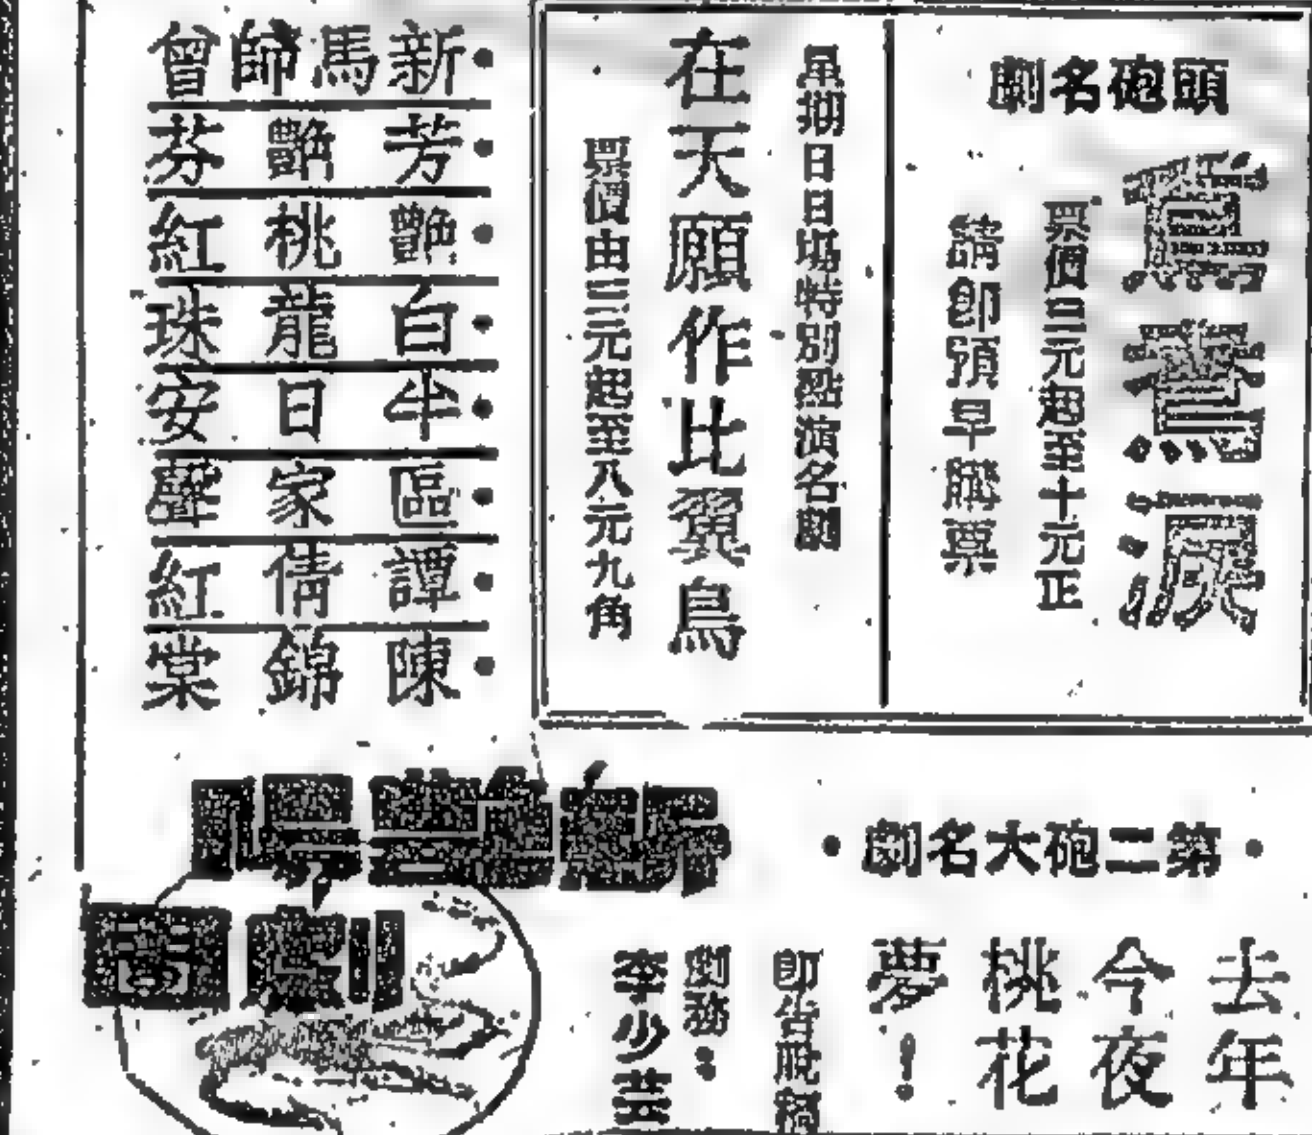 頭砲名劇
鴛鴦淚
票價三元起至十元正
請即預早購票
星期日日場特別點演名劇
在天願作比翼鳥
票價由三元起至八元九角
新馬師曾
芳艷芬
艷桃紅
白龍珠
半日安
區家聲
譚倩紅
陳錦棠
第二砲大名劇
去年
今夜
桃花
夢！
即告脫稿
劇務：
李少芸
劇團